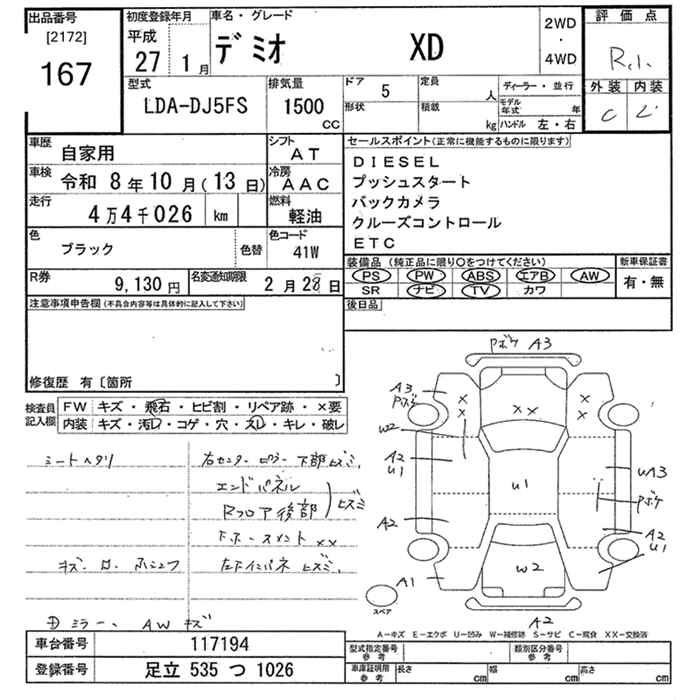 出品番号
[2172]
167
初度登録年月
平成
27 1月
車名・グレード
デミオ XD
2WD
・
4WD
評価点
R.1.
外装 内装
C
型式
LDA-DJ5FS
排気量
1500
CC
ドア 5
形状
定員 人
積載 kg
ディーラー・並行
モデル年式 年
ハンドル 左・右
車歴 自家用
シフト AT
車検 令和 8年10月(13日)
冷房 AAC
走行 4万4千026 km
燃料 軽油
色 ブラック 色替
色コード 41W
R券 9,130円
名変通知期限 2月28日
セールスポイント(正常に機能するものに限ります)
DIESEL
プッシュスタート
バックカメラ
クルーズコントロール
ETC
装備品 (純正品に限り○をつけてください)
PS PW ABS エアB AW
SR ナビ TV カワ
新車保証書
有・無
後日品
注意事項申告欄(不具合内容等は具体的に記入して下さい)
修復歴 有〔箇所 〕
検査員記入欄
FW キズ・飛石・ヒビ割・リペア跡・×要
内装 キズ・汚レ・コゲ・穴・スレ・キレ・破レ
シートヘタリ
右センターピラー下部ヒズミ,
エンドパネル
Rフロア後部 ヒズミ
××
ヒズミ,
ミラー、AWキズ
Pボケ A3
A3
Pボケ
×
×
××
×
×
W2
A2
U1
U1
UA3
Pボケ
A2
A2
U1
A1
W2
A2
スペア
A-キズ E-エクボ U-凹み W-補修跡 S-サビ C-腐食 XX-交換済
車台番号 117194
登録番号 足立 535 つ 1026
型式指定番号
参考
類別区分番号
参考
車庫証明用
参考
長さ cm
幅 cm
高さ cm